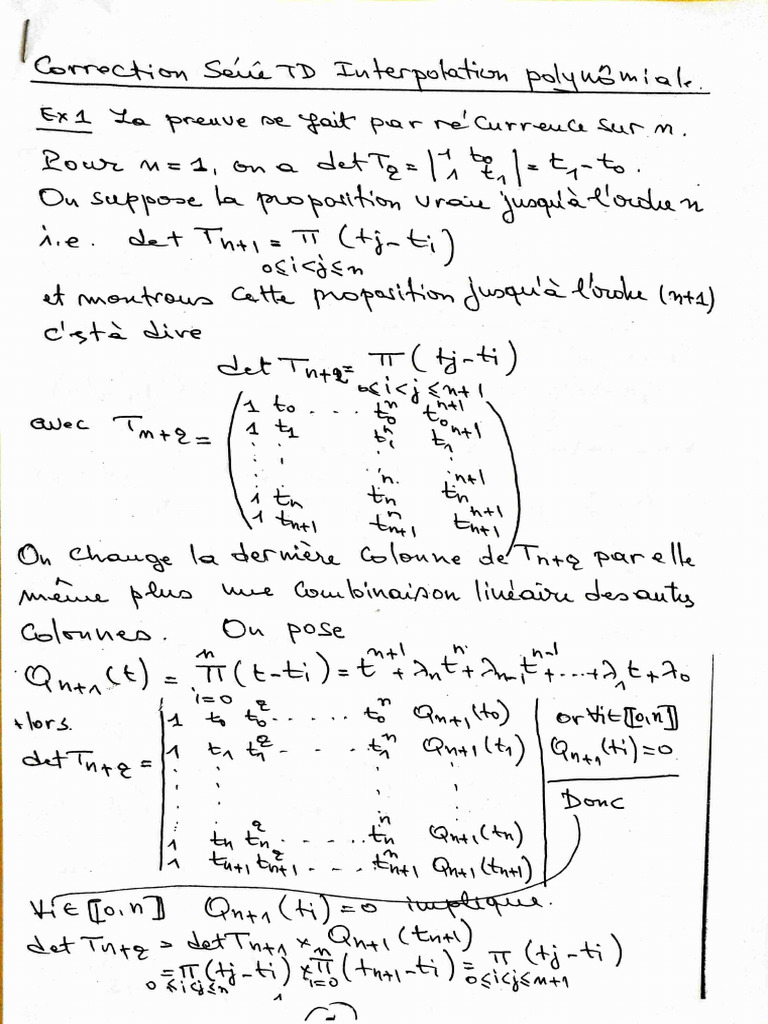 Correction Série TD Interpolation polynômiale.
Ex1 La preuve se fait par récurrence sur n.
Pour n=1, on a det T₂ = |1 t₀ / 1 t₁| = t₁ - t₀.
On suppose la proposition vraie jusqu'à l'ordre n
i.e. det Tₙ₊₁ = π (tj - ti)
0≤i<j≤n
et montrons cette proposition jusqu'à l'ordre (n+1)
c'est à dire
det Tₙ₊₂ = π (tj - ti)
0≤i<j≤n+1
avec Tₙ₊₂ =
1 t₀ . . . t₀ⁿ t₀ⁿ⁺¹
1 t₁ t₁ⁿ t₁ⁿ⁺¹
1 tₙ tₙⁿ tₙⁿ⁺¹
1 tₙ₊₁ tₙ₊₁ⁿ tₙ₊₁ⁿ⁺¹
On change la dernière colonne de Tₙ₊₂ par elle
même plus une combinaison linéaire des autres
colonnes. On pose
Qₙ₊₁(t) = π (t - ti) = tⁿ⁺¹ + λₙtⁿ + λₙ₋₁tⁿ⁻¹ + ... + λ₁t + λ₀
n
i=0
Alors
det Tₙ₊₂ =
1 t₀ t₀² . . . . . t₀ⁿ Qₙ₊₁(t₀)
1 t₁ t₁² - . . . t₁ⁿ Qₙ₊₁(t₁)
1 tₙ tₙ² . . . . . tₙⁿ Qₙ₊₁(tₙ)
1 tₙ₊₁ tₙ₊₁² . . . . tₙ₊₁ⁿ Qₙ₊₁(tₙ₊₁)
or ∀i∈⟦0,n⟧
Qₙ₊₁(ti) = 0
Donc
∀i∈⟦0,n⟧ Qₙ₊₁(ti) = 0 implique.
det Tₙ₊₂ = det Tₙ₊₁ × Qₙ₊₁(tₙ₊₁)
= π (tj - ti) × π (tₙ₊₁ - ti) = π (tj - ti)
0≤i<j≤n n i=0 0≤i<j≤n+1